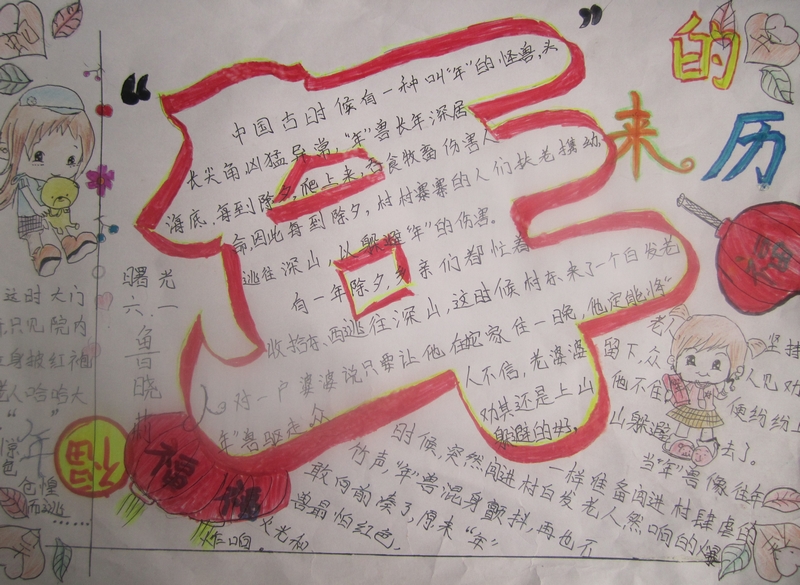 “年”的来历
中国古时候有一种叫“年”的怪兽,头
长尖角凶猛异常,“年”兽长年深居
海底,每到除夕,爬上来,吞食牧畜伤害人
命,因此每到除夕,村村寨寨的人们扶老携幼
逃往深山,以躲避“年”的伤害。
有一年除夕,乡亲们都忙着
收拾东西逃往深山,这时候村东来了一个白发老
人对一户婆婆说只要让他在她家住一晚,他定能将“
年”兽驱走,众
人不信,老婆婆
劝其还是上山
躲避的好,
老人坚持
留下,众人见劝
他不住便纷纷上
山躲避去了。
当“年”兽像往年
一样准备闯进村肆虐的
时候,突然
响的爆
竹声,“年”兽混身颤抖,再也不
敢向前凑了,原来“年”
兽最怕红色,
火光和
炸响。
这时大门
只见院内
身披红袍
人哈哈大
年
仓惶
而逃……
曙光
六.一
鲁晓
福
福
福
福